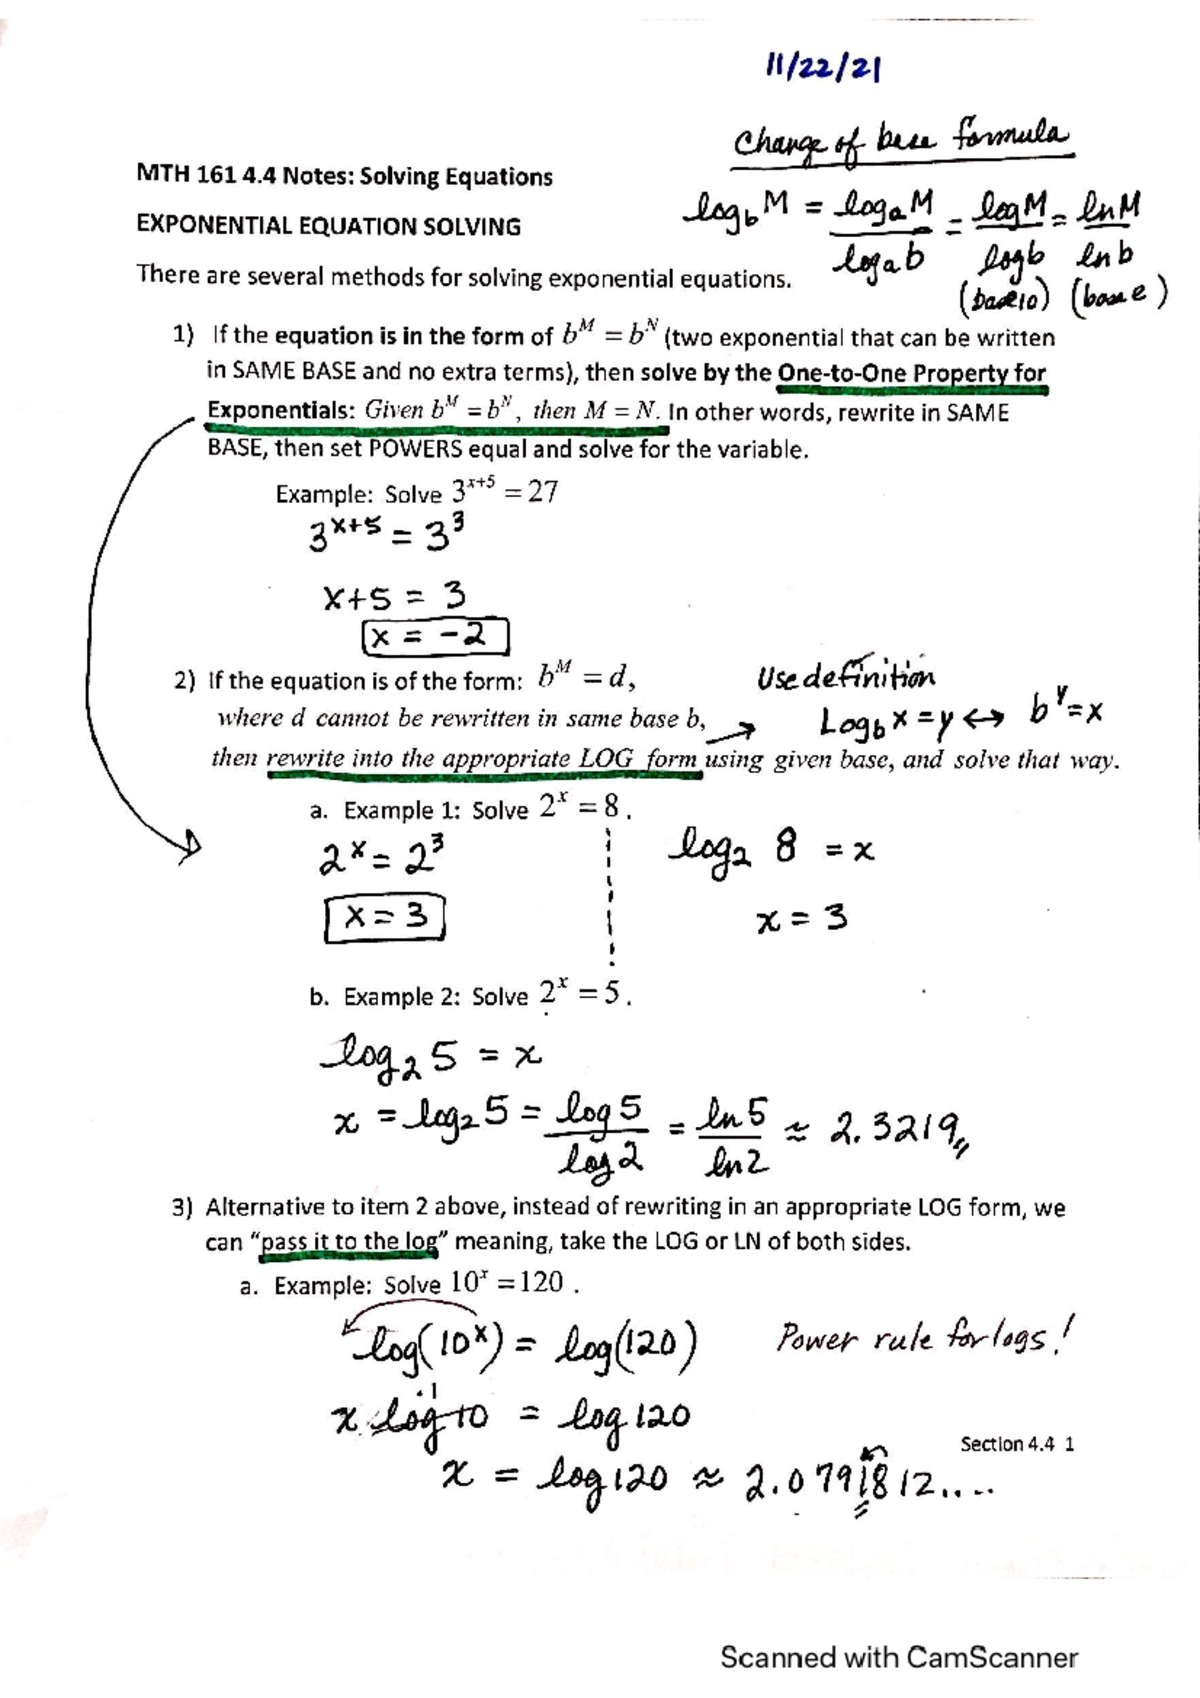 11/22/21
Change of base formula
MTH 161 4.4 Notes: Solving Equations
log_b M = log_a M / log_a b = log M / log b = ln M / ln b
(base 10) (base e)
EXPONENTIAL EQUATION SOLVING
There are several methods for solving exponential equations.
1) If the equation is in the form of b^M = b^N (two exponential that can be written
in SAME BASE and no extra terms), then solve by the One-to-One Property for
Exponentials: Given b^M = b^N, then M = N. In other words, rewrite in SAME
BASE, then set POWERS equal and solve for the variable.
Example: Solve 3^{x+5} = 27
3^{x+5} = 3^3
x+5 = 3
x = -2
2) If the equation is of the form: b^M = d,
Use definition
where d cannot be rewritten in same base b,
→ Log_b x = y ↔ b^y = x
then rewrite into the appropriate LOG form using given base, and solve that way.
a. Example 1: Solve 2^x = 8.
2^x = 2^3
log_2 8 = x
x = 3
x = 3
b. Example 2: Solve 2^x = 5.
log_2 5 = x
x = log_2 5 = log 5 / log 2 = ln 5 / ln 2 ≈ 2.3219
3) Alternative to item 2 above, instead of rewriting in an appropriate LOG form, we
can “pass it to the log” meaning, take the LOG or LN of both sides.
a. Example: Solve 10^x = 120.
log(10^x) = log(120) Power rule for logs!
1
x · log 10 = log 120
Section 4.4 1
x = log 120 ≈ 2.0791812....
Scanned with CamScanner